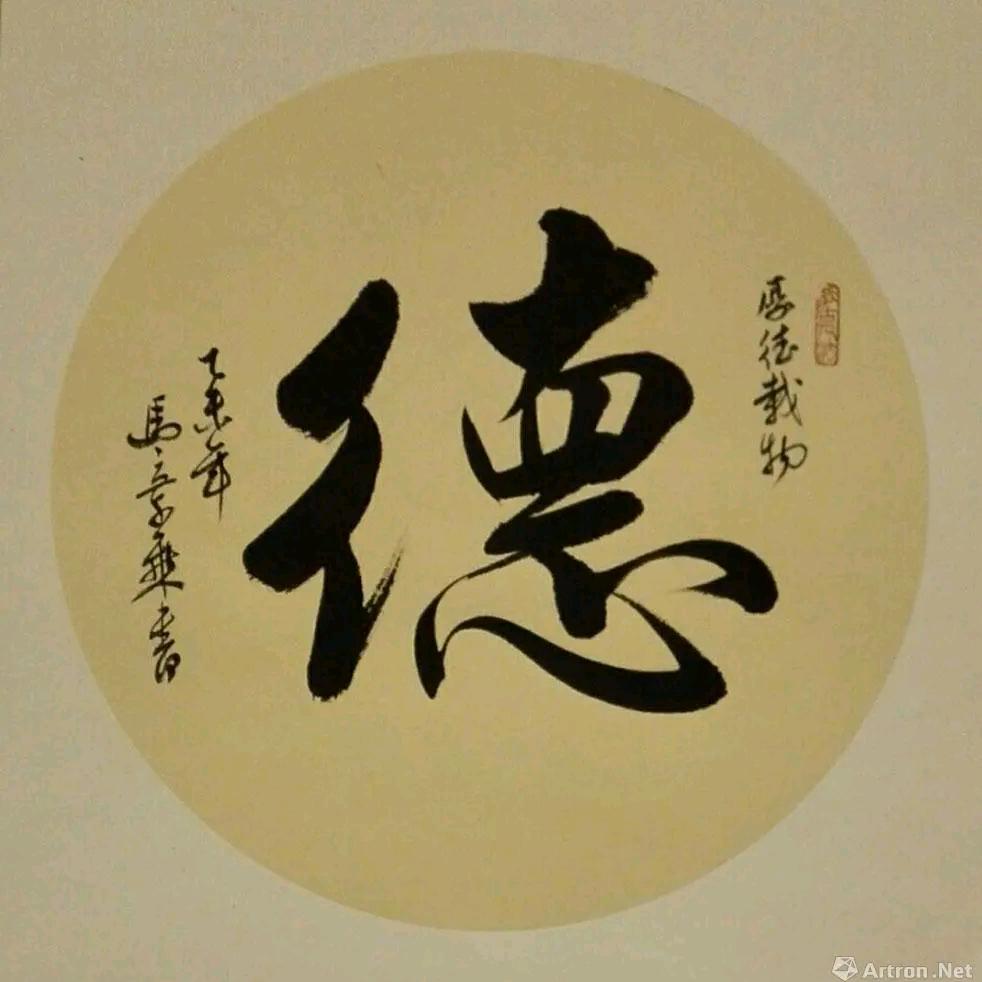 厚德载物
德
乙未年
馬
書
Artron.Net